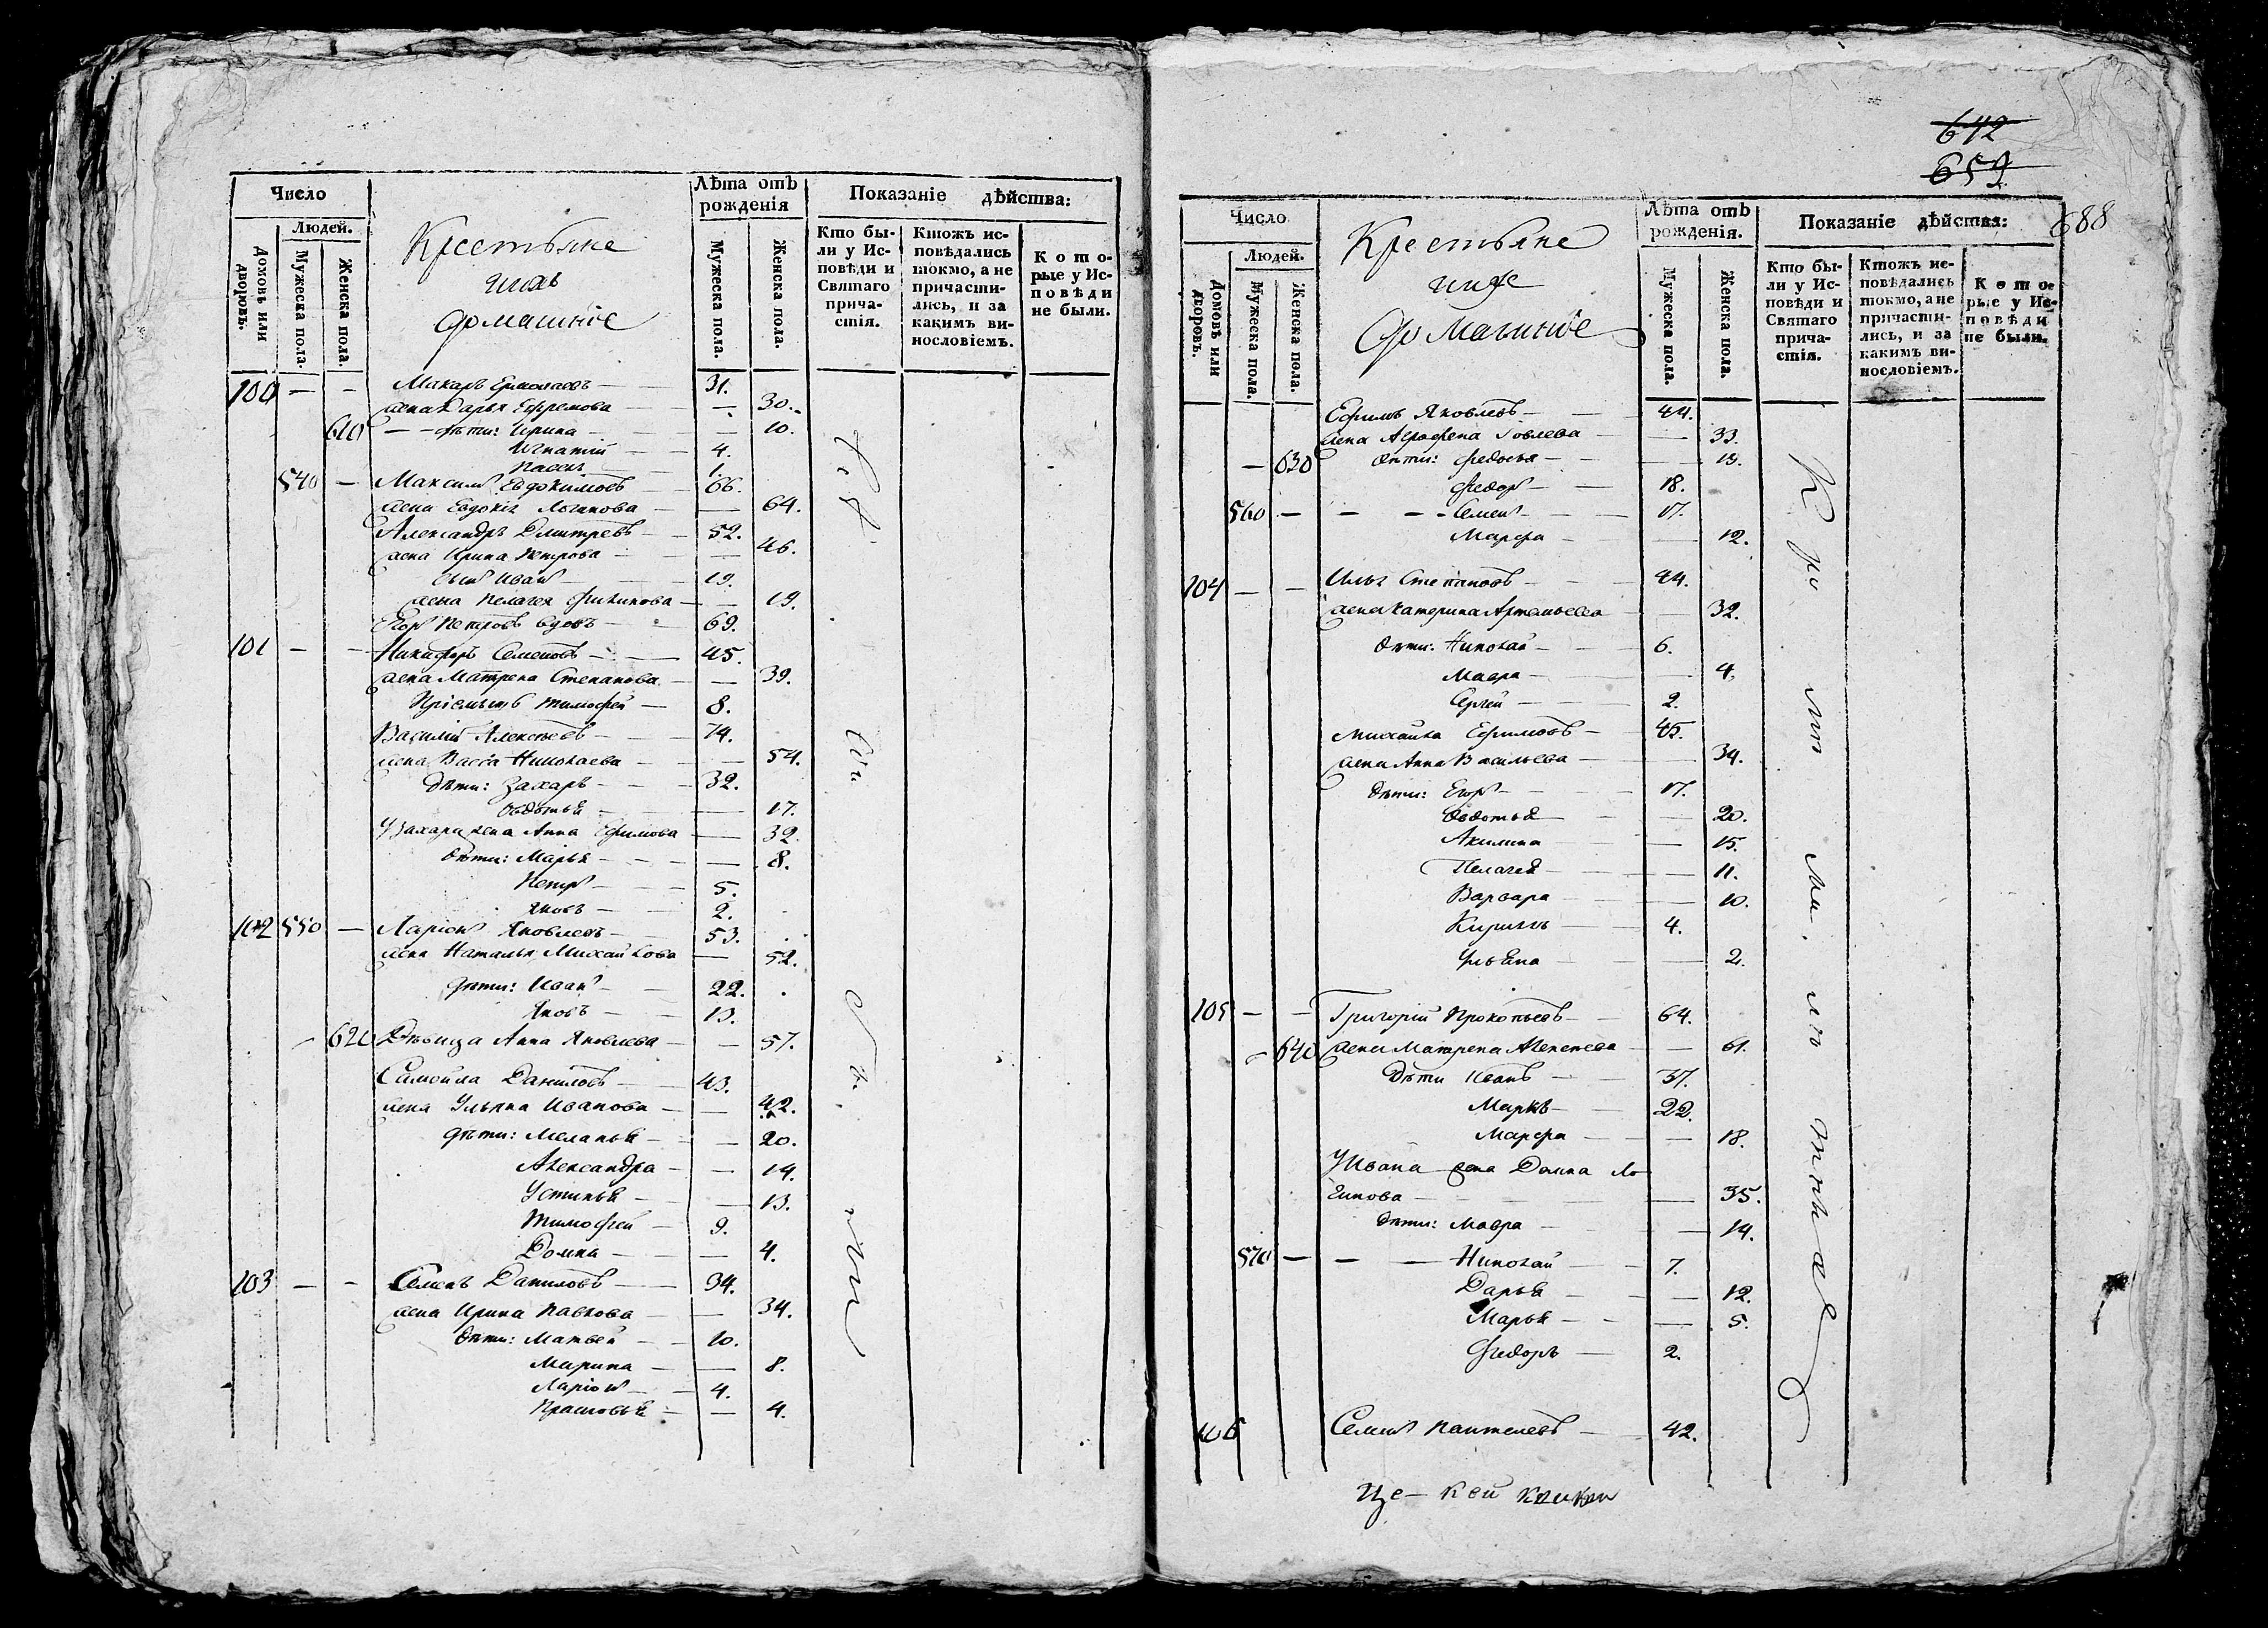 Число
Людей.
Домовъ или дворовъ.
Мужеска пола.
Женска пола.
Крестьяне
ихъ
домашніе
Лѣта отъ рожденія
Мужеска пола.
Женска пола.
Показаніе дѣйства:
Кто бы-
ли у Ис-
повѣди и
Святаго
прича-
стія.
Ктожъ ис-
повѣдались
токмо, а не
причасти-
лись, и за
какимъ ви-
нословіемъ.
К о т о-
рые у Ис-
п о в ѣ д и
не были.
100 — — Макаръ Ермолаевъ — 31.
жена Дарья Ефремова — — 30.
610 — — дѣти: Ирина — — 10.
Игнатій — — 4.
1.
540 — Максимъ Евдокимовъ — 66.
жена Евдокія Логинова — — 64.
Александръ Дмитревъ — 52.
жена Ирина Петрова — — 46.
сынъ Иванъ — 19.
жена Пелагея Филипова — — 19.
Егоръ Петровъ вдовъ — 69.
101 — — Никифоръ Семеновъ — 45.
жена Матрена Степанова — — 39.
Пріемышъ Тимофей — 8.
Василій Алексѣевъ — 74.
жена Васса Николаева — — 54.
дѣти: Захаръ — 32.
Овдотья — — 17.
У Захара жена Анна Ефимова — 32.
дѣти: Марья — — 8.
Петръ — 5.
Яковъ — 2.
102 550 — Ларіонъ Яковлевъ — 53.
жена Наталья Михайлова — 52.
дѣти: Иванъ — 22.
Яковъ — 13.
620 Дѣвица Анна Яковлева — — 57.
Самойла Даниловъ — 43.
жена Ульяна Иванова — — 42.
дѣти: Меланья — — 20.
Александра — — 14.
Устинья — — 13.
Тимофей — 9.
Домна — — 4.
103 — — Семенъ Даниловъ — 34.
жена Ирина Павлова — — 34.
дѣти: Матвей — 10.
Марина — — 8.
Ларіонъ — 4.
Прасковья — — 4.
642
659
688
Число
Людей.
Домовъ или дворовъ.
Мужеска пола.
Женска пола.
Крестьяне
ихъ
Домашніе
Лѣта отъ рожденія.
Мужеска пола.
Женска пола.
Показаніе дѣйства:
Кто бы-
ли у Ис-
повѣди и
Святаго
прича-
стія.
Ктожъ ис-
повѣдались
токмо, а не
причасти-
лись, и за
какимъ ви-
нословіемъ.
К о т о-
рые у Ис-
п о в ѣ д и
не были.
Ефимъ Яковлевъ — 44.
жена Аграфена — 33.
— 630 дѣти: Федосья — — 19.
Федоръ — 18.
560 — — — Семенъ — 17.
Марфа — — 12.
104 — — Илья Степановъ — 44.
жена Катерина Артемьева — — 32.
дѣти: Николай — 6.
Мавра — — 4.
Сергей — 2.
Михайла Ефимовъ — 45.
жена Анна Васильева — — 34.
дѣти: Егоръ — 17.
Овдотья — — 20.
Акилина — — 15.
Пелагея — — 11.
Варвара — — 10.
Кирилъ — 4.
Ульяна — — 2.
105 — — Григорій Прокопьевъ — 64.
— 640 жена Матрена Алексѣева — — 61.
Дѣти Иванъ — 37.
Маркъ — 22.
Марфа — — 18.
У Ивана жена Домна Ло-
гинова — — 35.
дѣти: Мавра — — 14.
570 — — — Николай — 7.
Дарья — — 12.
Марья — — 5.
Федоръ — 2.
106 Семенъ Пантелевъ — 42.